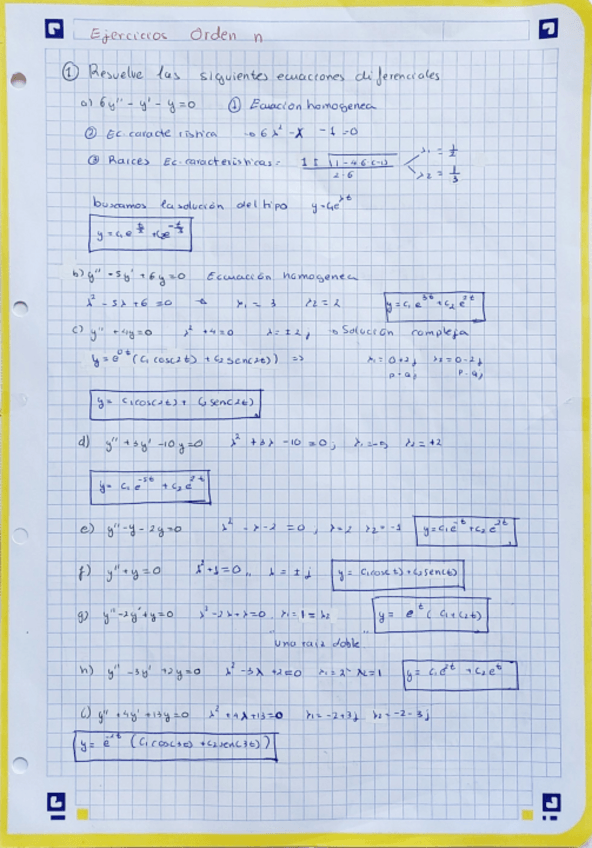 Ejercicios Orden n
① Resuelve las siguientes ecuaciones diferenciales
a) 6y'' - y' - y = 0 ① Ecuacion homogenea
② Ec. caracteristica → 6λ² - λ - 1 = 0
③ Raices Ec. caracteristicas: 1 ± √1-4·6(-1) / 2·6 λ₁ = 1/2 λ₂ = 1/3
buscamos la solución del tipo y = C₁e^λt
y = C₁e^t/2 + C₂e^-t/3
b) y'' - 5y' + 6y = 0 Ecuación homogenea
λ² - 5λ + 6 = 0 → λ₁ = 3 λ₂ = 2 y = C₁e^3t + C₂e^2t
c) y'' + 4y = 0 λ² + 4 = 0 λ = ±2j → Solución compleja
y = e^0t (C₁cos(2t) + C₂sen(2t)) => λ₁ = 0+2j λ₂ = 0-2j
p+qj p-qj
y = C₁cos(2t) + C₂sen(2t)
d) y'' + 3y' - 10y = 0 λ² + 3λ - 10 = 0; λ₁ = -5 λ₂ = +2
y = C₁e^-5t + C₂e^2t
e) y'' - y - 2y = 0 λ² - λ - 2 = 0, λ = 2 λ₂ = -1 y = C₁e^-t + C₂e^2t
f) y'' + y = 0 λ² + 1 = 0, λ = ±j y = C₁cos(t) + C₂sen(t)
g) y'' - 2y' + y = 0 λ² - 2λ + λ = 0, λ₁ = 1 = λ₂ y = e^t (C₁ + C₂t)
"una raiz doble"
h) y'' - 3y' + 2y = 0 λ² - 3λ + 2 = 0 λ₁ = 2 λ₂ = 1 y = C₁e^2t + C₂e^t
i) y'' + 4y' + 13y = 0 λ² + 4λ + 13 = 0 λ₁ = -2+3j λ₂ = -2-3j
y = e^-2t (C₁cos(3t) + C₂sen(3t))